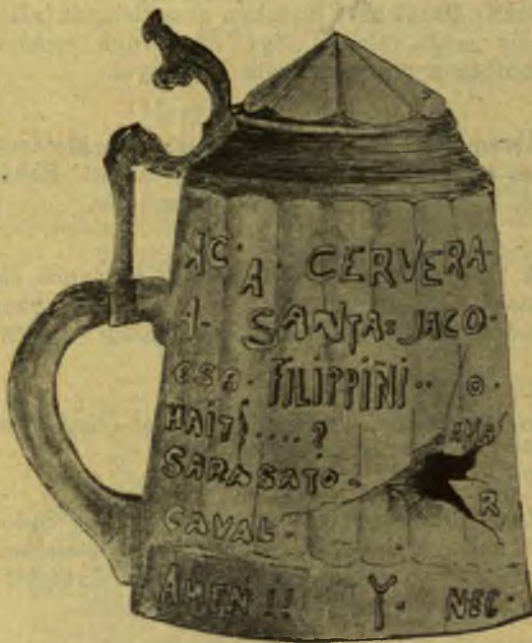 AC· A· CERVERA·
A· SANTA=JACO·
OSO· FILIPPIÑI·· O·
HAITI....? AVA
SARASATO·
CAVAL= R
AMEN!! Y· NEC·